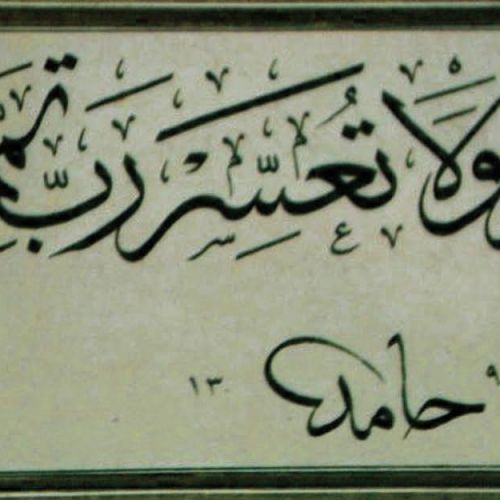 ولا تعسر رب تمم
حامد ١٣